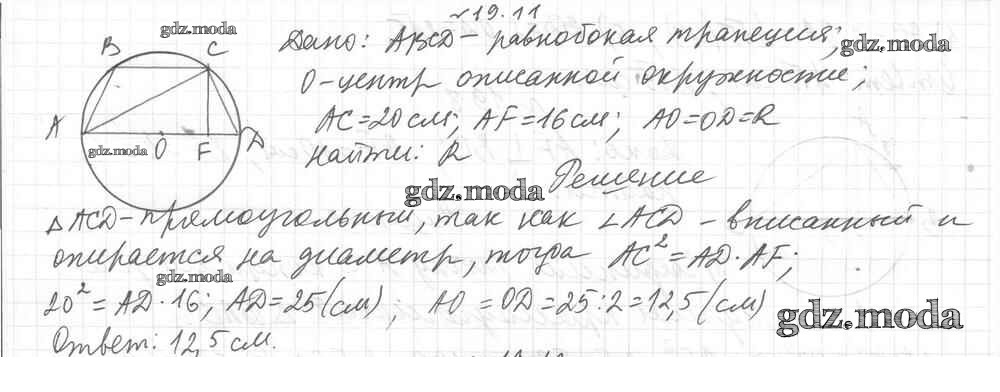 №19.11
gdz.moda
B C
A O F D
gdz.moda
Дано: ABCD - равнобокая трапеция;
gdz.moda
O-центр описанной окружности;
AC=20см; AF=16см; AO=OD=R
Найти: R
gdz.moda
Решение
△ACD-прямоугольный, так как ∠ACD - вписанный и
опирается на диаметр, тогда AC²=AD·AF;
gdz.moda
20²=AD·16; AD=25(см); AO=OD=25:2=12,5(см)
gdz.moda
Ответ: 12,5см.